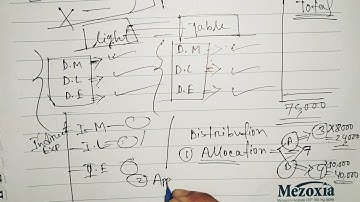 Total
light
Table
D. M
D. L
D. E
D. M
D. L
D. E
75,000
Indirect
Exp
I. M
I. L
I. E
Distribution
① Allocation
② App
A
B
③ x 8000
24000
40,000
Mezoxia